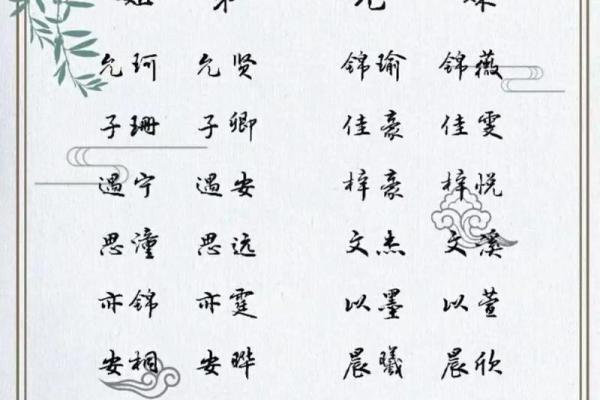 姐 弟 兄 妹
允珂 允贤 锦瑜 锦薇
子珊 子卿 佳豪 佳雯
遇宁 遇安 梓豪 梓悦
思潼 思远 文杰 文溪
亦锦 亦霆 以墨 以萱
安桐 安晔 晨曦 晨欣